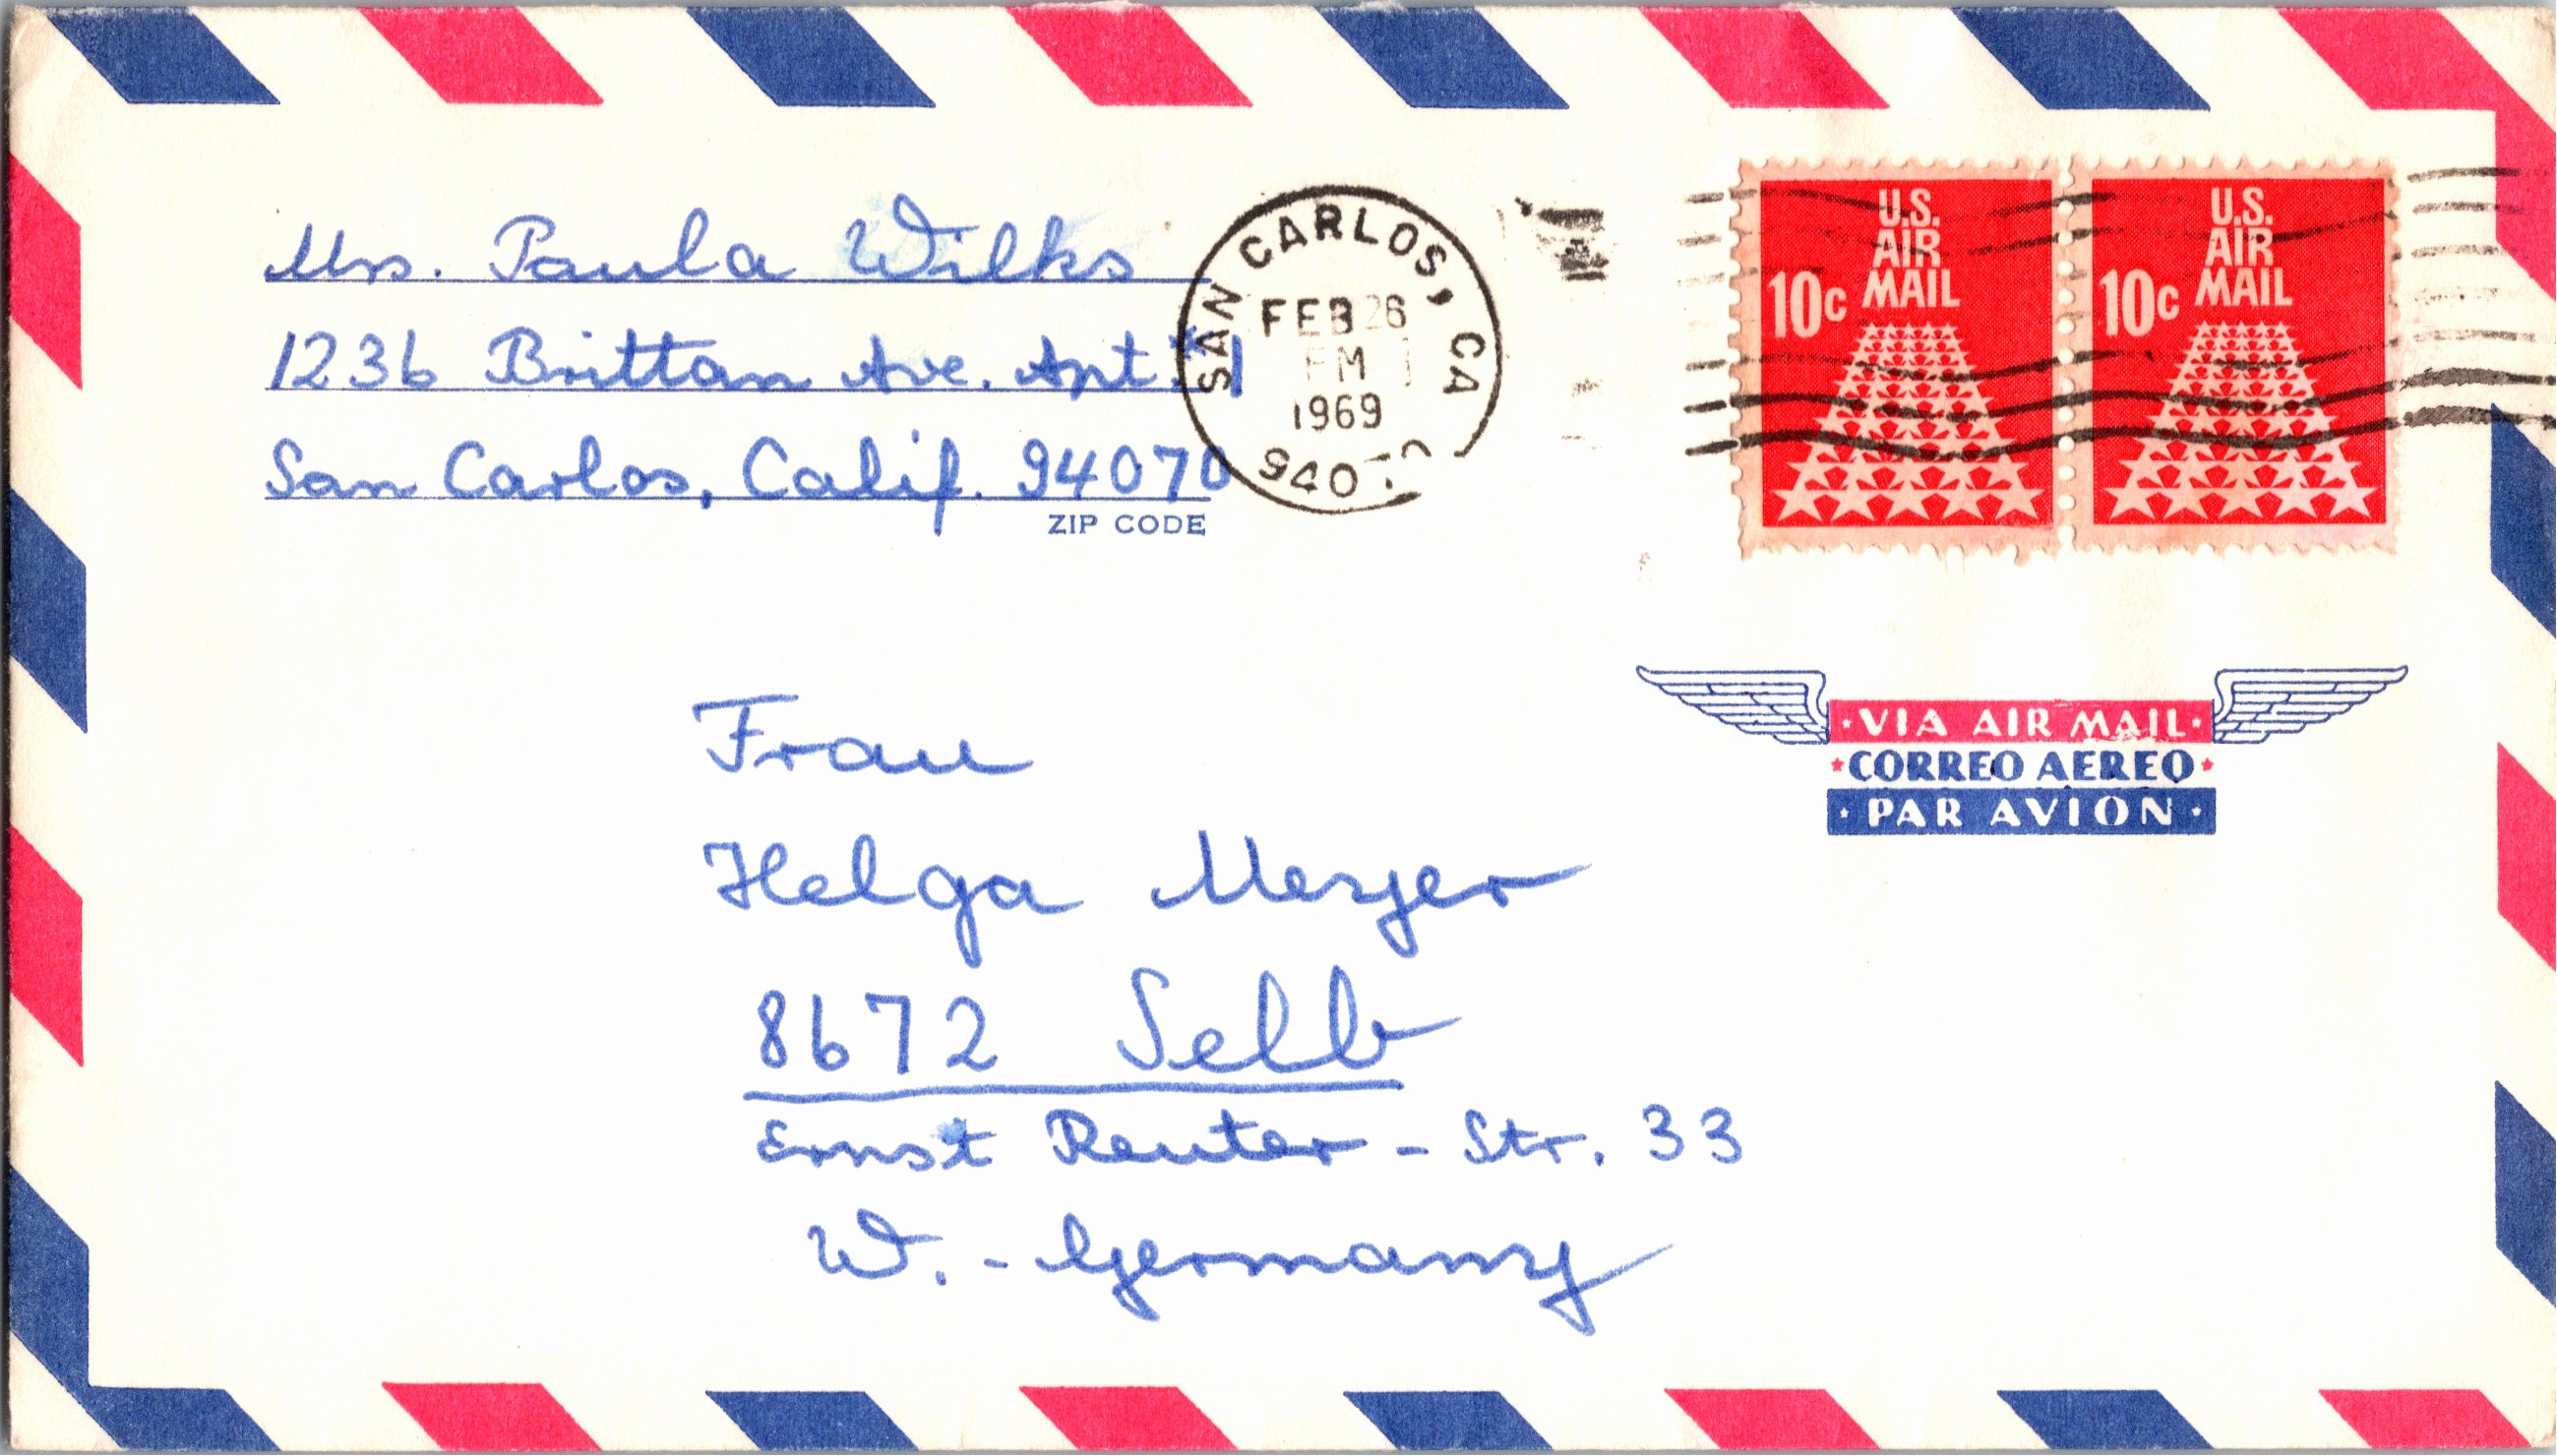 Mrs. Paula Wilks
1236 Brittan Ave. Apt. #1
San Carlos, Calif. 94070
ZIP CODE
SAN CARLOS, CA
FEB 26
PM
1969
940
U.S.
AIR
MAIL
10c
U.S.
AIR
MAIL
10c
VIA AIR MAIL
CORREO AEREO
PAR AVION
Frau
Helga Meyer
8672 Selb
Ernst Reuter - Str. 33
W. - Germany